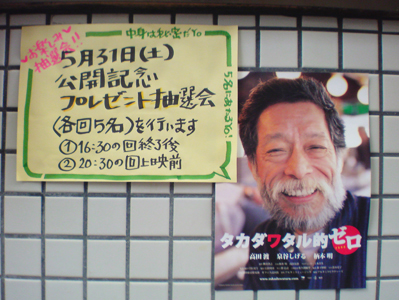 お楽しみ
抽選会!!
中身は秘密だYo
5月31日(土)
公開記念
プレゼント抽選会
(各回5名)を行います
①16:30の回終了後
②20:30の回上映前
5名にあたるYo!
タカダワタル的ゼロ
高田渡 泉谷しげる 柄本明